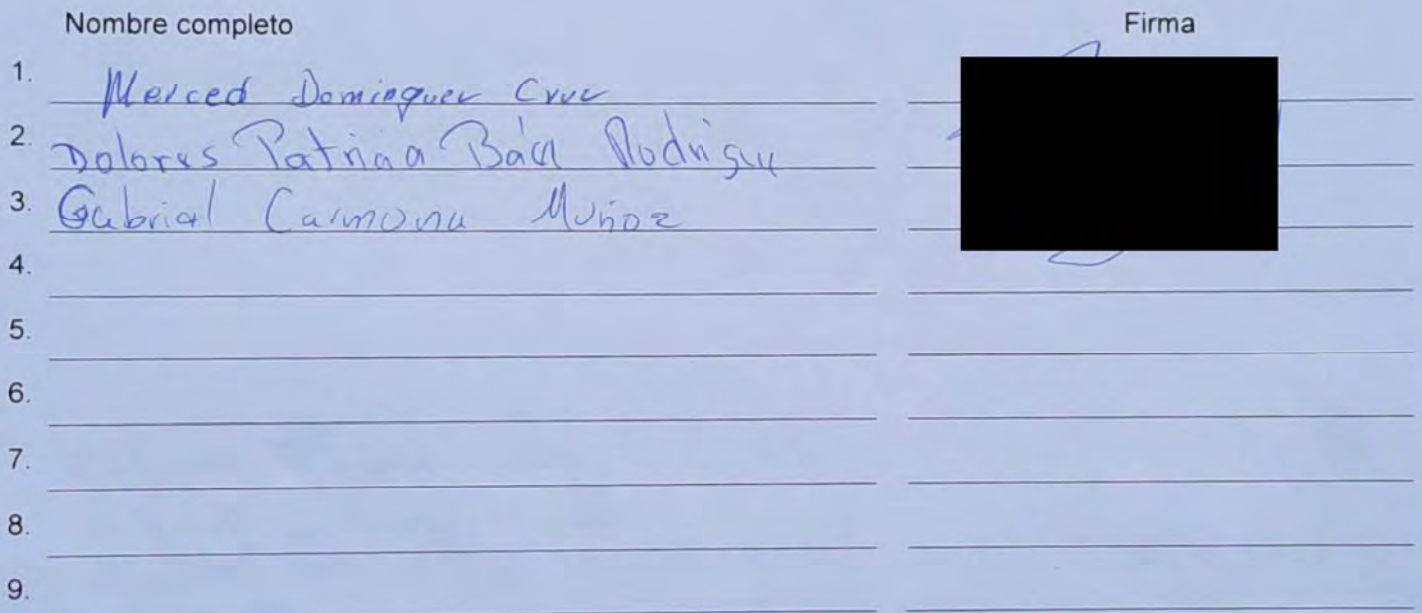 Nombre completo Firma
1. Merced Dominguez Cruz
2. Dolores Patricia Báez Rodríguez
3. Gabriel Carmona Muñoz
4.
5.
6.
7.
8.
9.